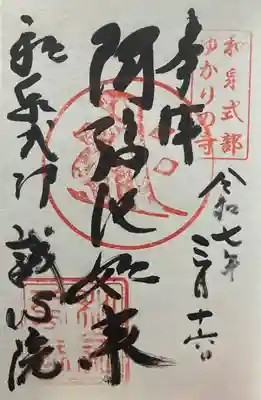 和泉式部
ゆかりの寺
奉拝
令和七年
三月十六日
阿弥陀如来
和泉式部
誠心院